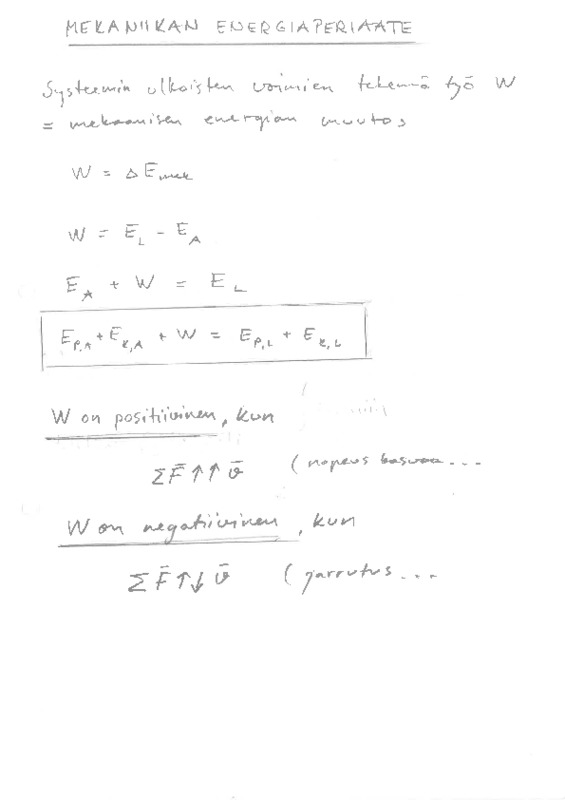 MEKANIIKAN ENERGIAPERIAATE
Systeemin ulkoisten voimien tekemä työ W
= mekaanisen energian muutos
W = ΔE_mek
W = E_L - E_A
E_A + W = E_L
E_P,A + E_K,A + W = E_P,L + E_K,L
W on positiivinen, kun
ΣF̄ ↑↑ v̄ (nopeus kasvaa...
W on negatiivinen, kun
ΣF̄ ↑↓ v̄ (jarrutus...